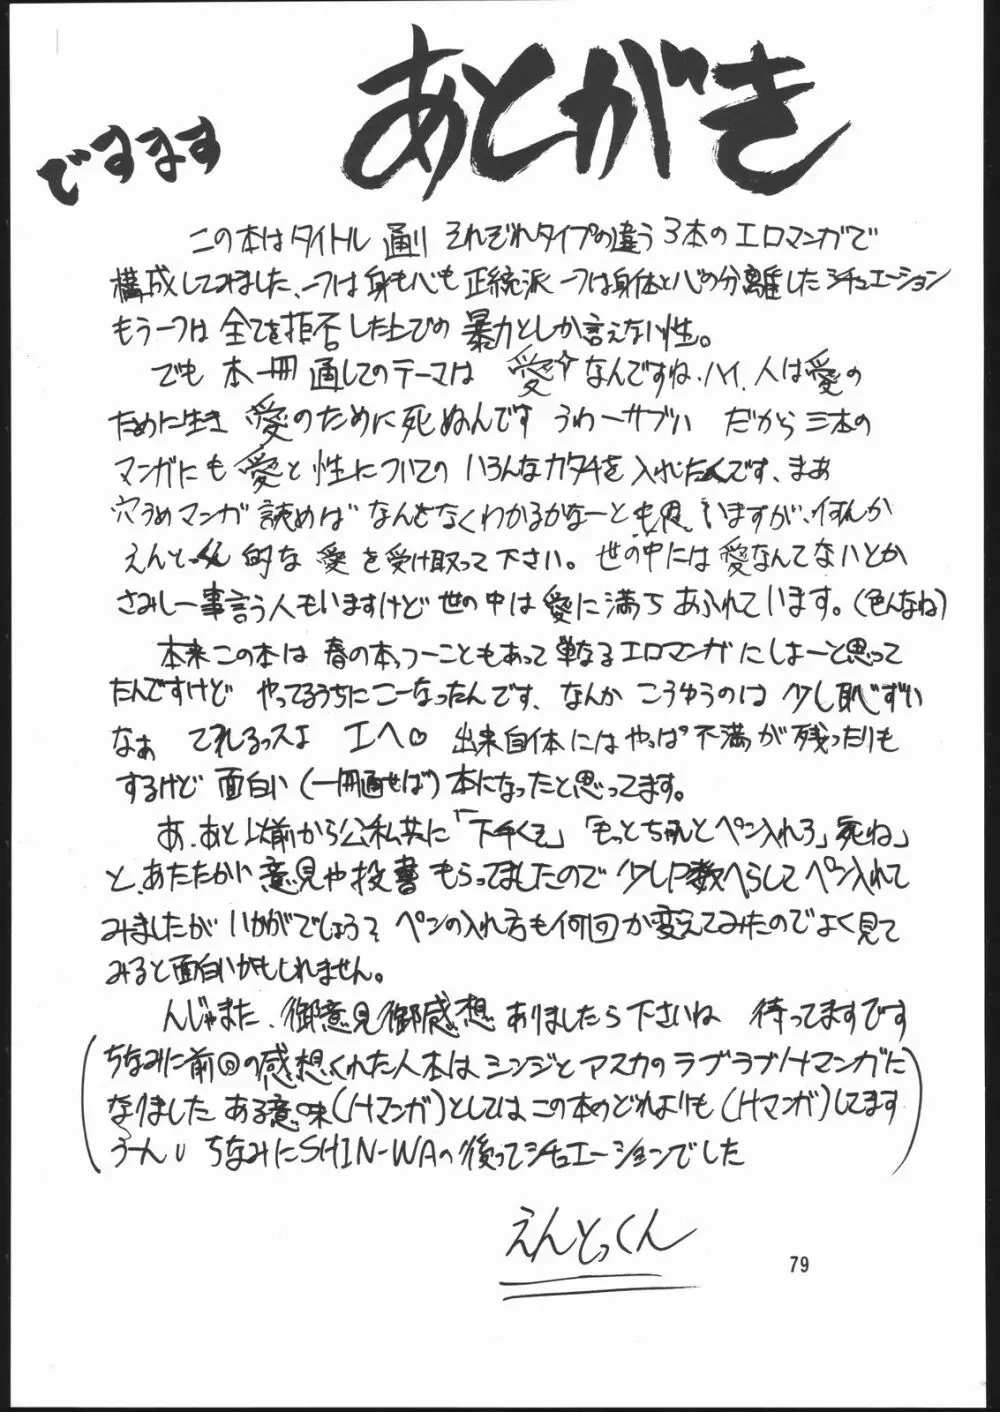 あとがき
ですます
この本はタイトル 通り それぞれタイプの違う 3本の エロマンガで
構成してみました、一つは身も心も 正統派 一つは身体と心の分離したシチュエーション
もう一つは 全てを拒否した上での 暴力としか言えない性。
でも 本一冊 通してのテーマは 愛 なんですね、ハイ、人は愛の
ために生き 愛のために死ぬんです うわーサブい だから 三本の
マンガにも 愛と性についての いろんなカタチを 入れたんです、まあ
穴うめマンガ 読めば なんとなくわかるかなーとも思いますが、何んか
えんとっくん 的な 愛を受け取って下さい。世の中には 愛なんてないとか
さみしー事言う人もいますけど 世の中は 愛に満ちあふれています。(色んなね)
本来この本は 春の本っつーこともあって 単なるエロマンガにしよーと思って
たんですけど やってるうちにこーなったんです、なんか こうゆうのは 少し恥ずい
なぁ てれるっスよ エヘ♡ 出来自体には やっぱ不満が残ったりも
するけど 面白い(一冊通せば)本になったと思ってます。
あ、あと 以前から公私共に「下手くそ」「もっとちゃんとペン入れろ」死ね」
と、あたたかい意見や投書もらってましたので 少しP数へらしてペン入れて
みましたが いかがでしょう? ペンの入れ方も何回か変えてみたのでよく見て
みると面白いかもしれません。
んじゃまた、御意見御感想 ありましたら 下さいね 待ってますです
(ちなみに前回の感想くれた人 本は シンジとアスカのラブラブHマンガに
なりました ある意味(Hマンガ)としては この本のどれよりも(Hマンガ)してます
うーん ちなみにSHIN-WAの後ってシチュエーションでした)
えんとっくん
79